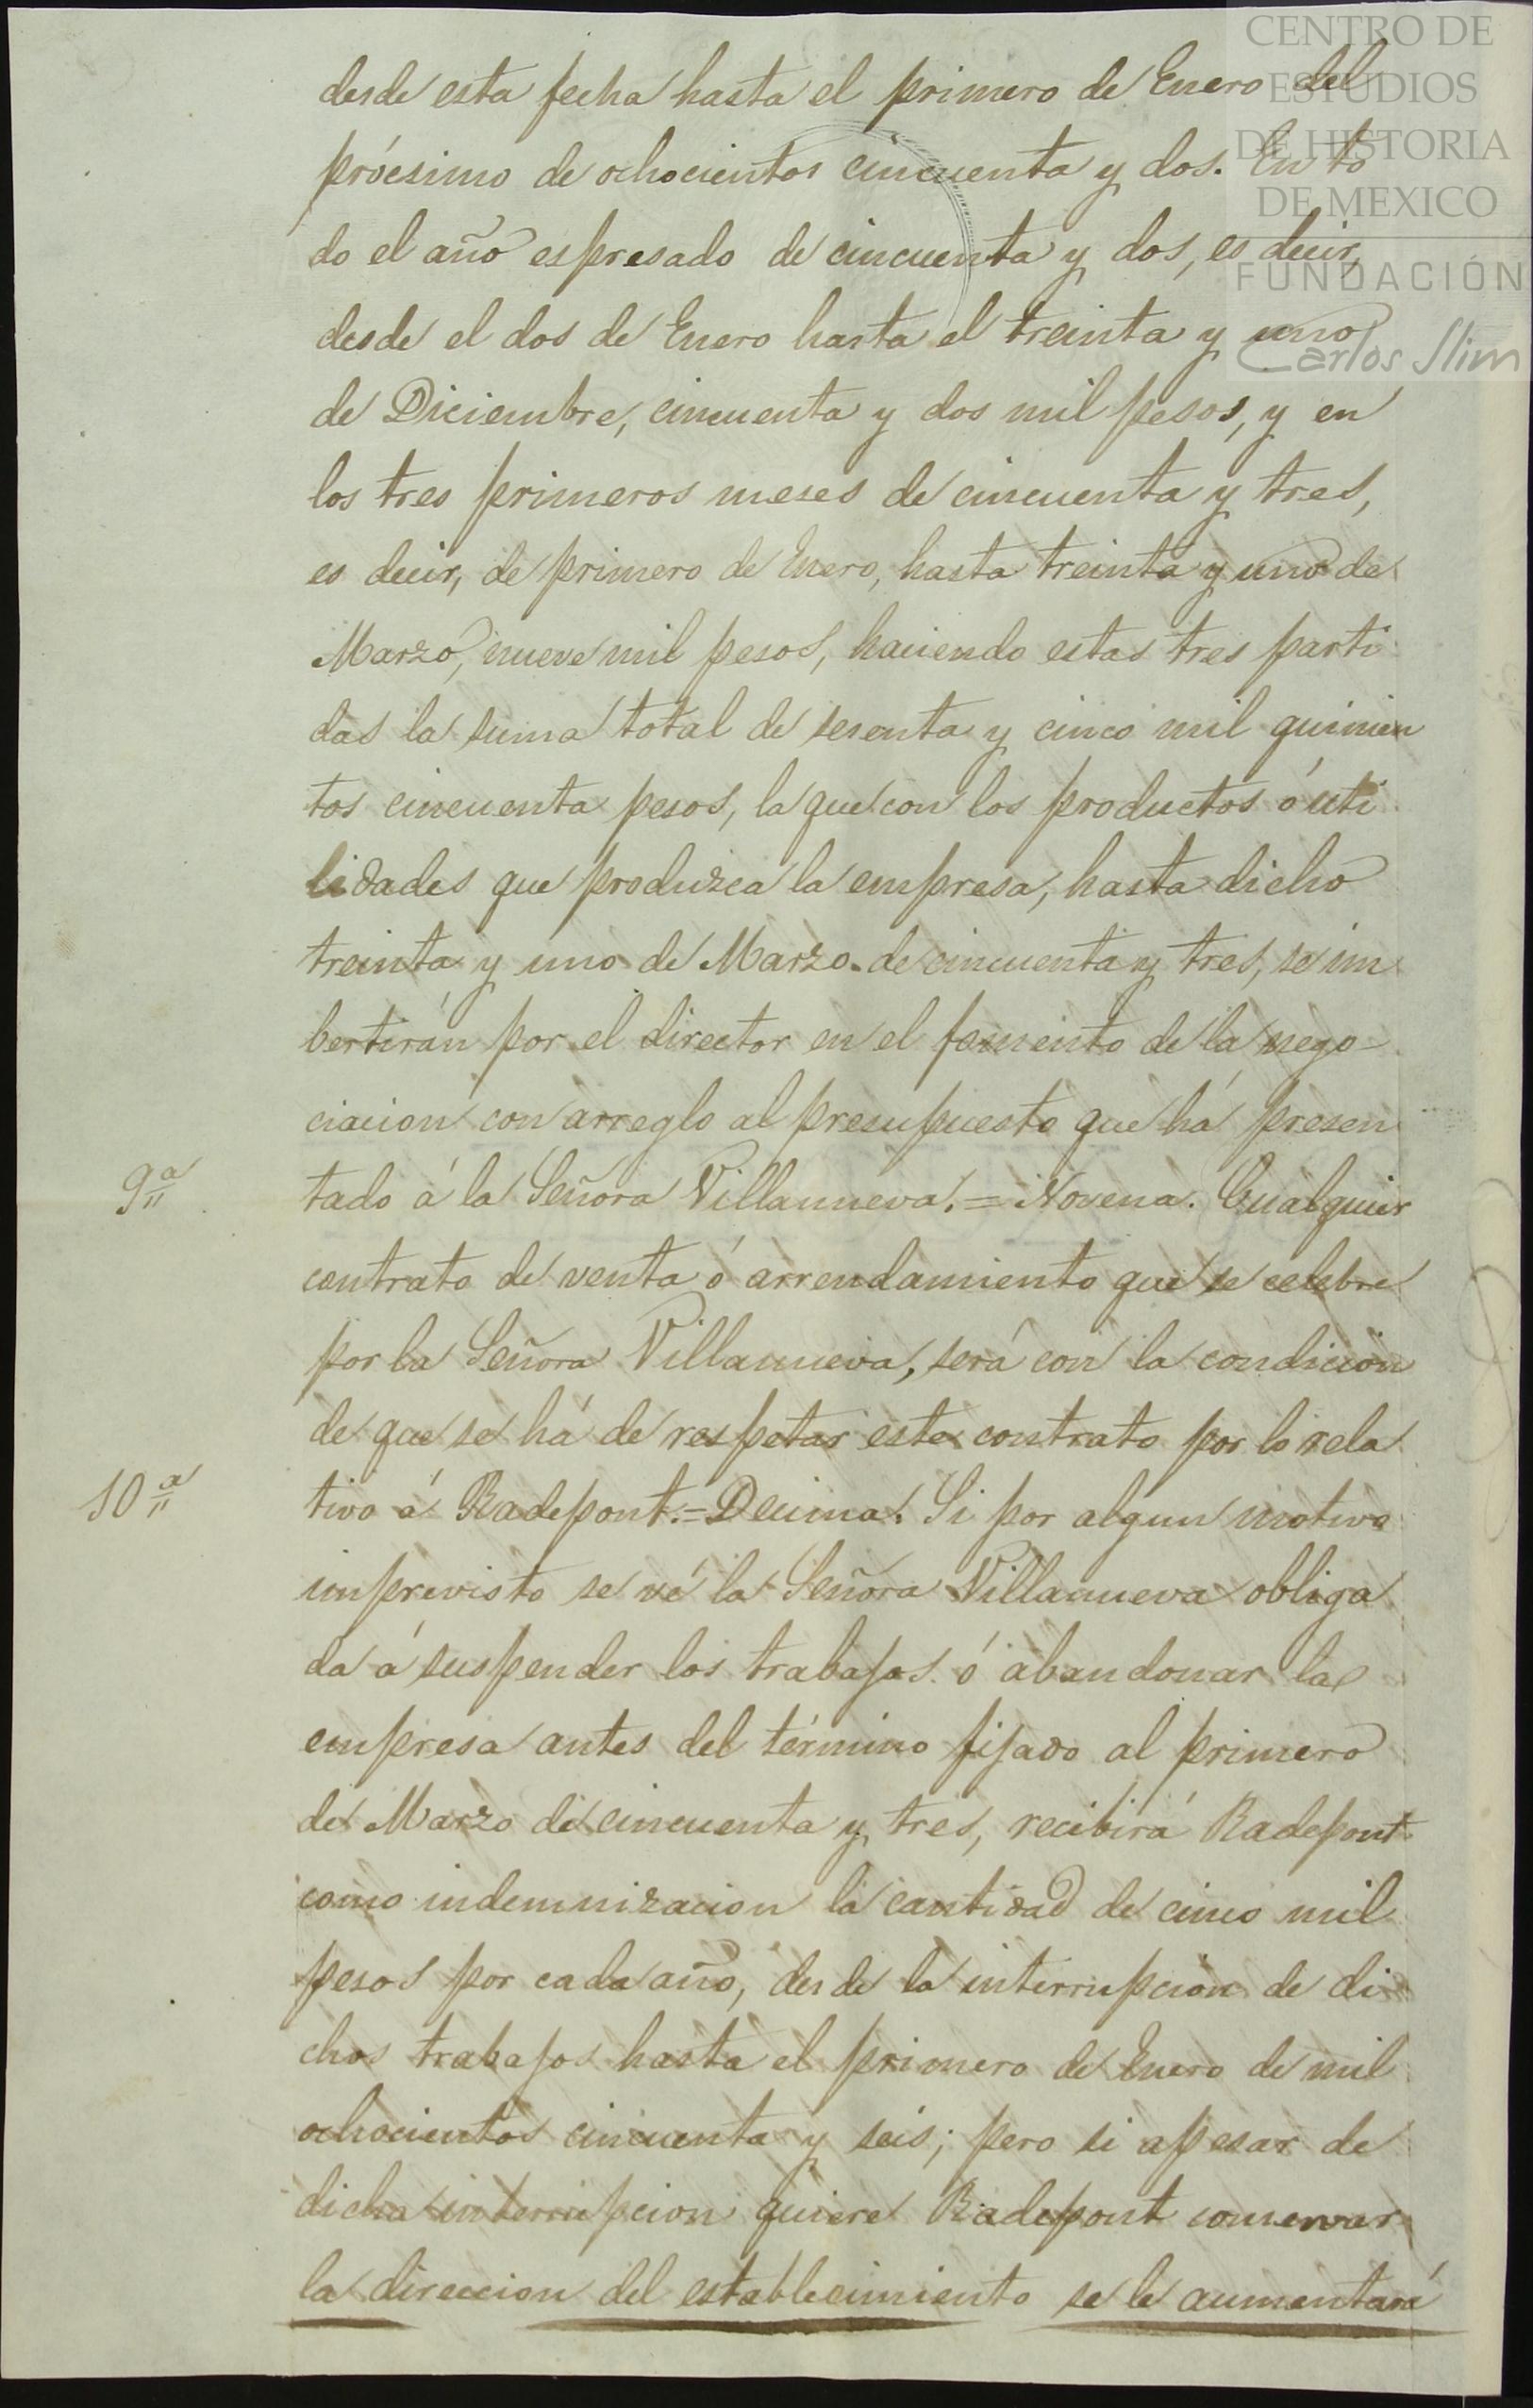 CENTRO DE
ESTUDIOS
DE HISTORIA
DE MEXICO
FUNDACIÓN
Carlos Slim
desde esta fecha hasta el primero de Enero del
prócsimo de ochocientos cincuenta y dos. En to
do el año espresado de cincuenta y dos, es decir,
desde el dos de Enero hasta el treinta y uno
de Diciembre, cincuenta y dos mil pesos, y en
los tres primeros meses de cincuenta y tres,
es decir, de primero de Enero, hasta treinta y uno de
Marzo, nueve mil pesos, haciendo estas tres parti
das la suma total de sesenta y cinco mil quinien
tos cincuenta pesos, la que con los productos ó uti
lidades que produzca la empresa, hasta dicho
treinta y uno de Marzo de cincuenta y tres, se im
bertirán por el director en el fomento de la nego=
ciacion con arreglo al presupuesto que há presen
9ª
tado á la Señora Villanueva.= Novena. Cualquier
contrato de venta ó arrendamiento que se celebre
por la Señora Villanueva, será con la condicion
de que se há de respetar este contrato por lo rela
10ª
tivo á Radepont.= Decima. Si por algun motivo
imprevisto se vé la Señora Villanueva obliga
da á suspender los trabajos ó abandonar la
empresa antes del término fijado al primero
de Marzo de cincuenta y tres, recibirá Radepont
como indemnizacion la cantidad de cinco mil
pesos por cada año, desde la interrupcion de di
chos trabajos hasta el primero de Enero de mil
ochocientos cincuenta y seis; pero si apesar de
dicha interrupcion quiere Radepont conservar
la direccion del establecimiento se le aumentará